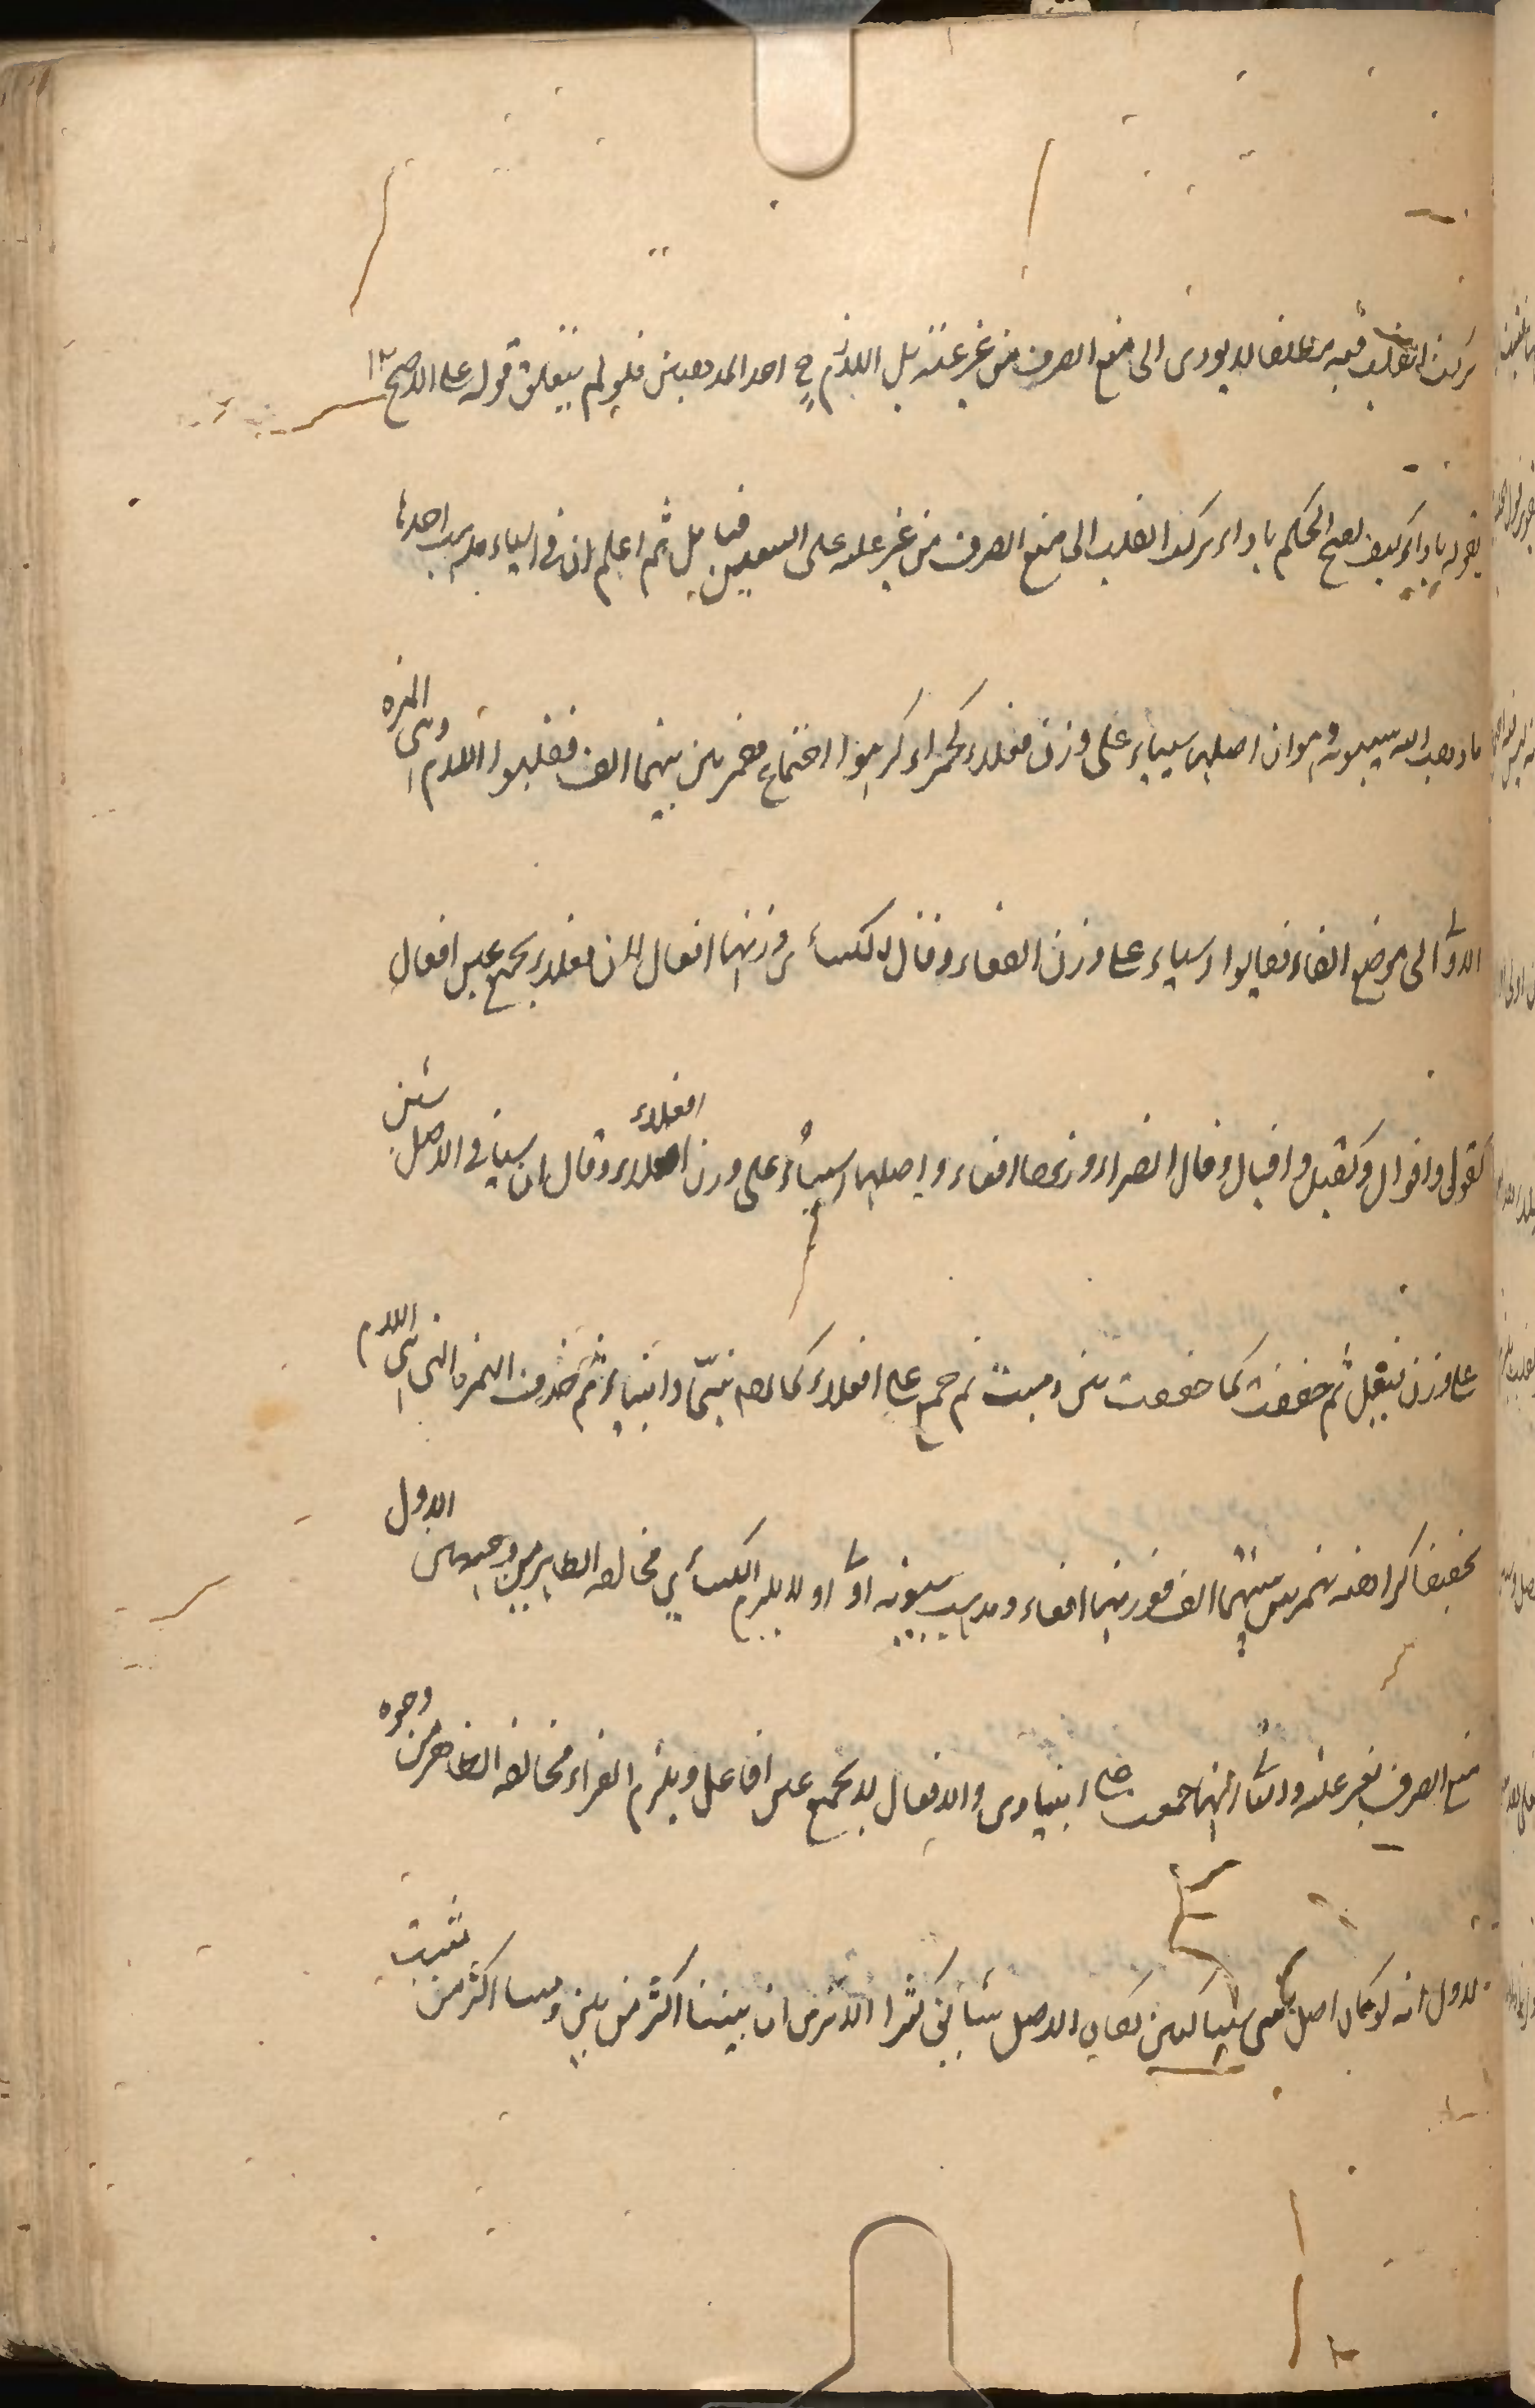 ترك القلب فيه مطلقا لا يودى الى منع الصرف من غير علة بل اللازم ح احد المذهبين فلو لم يتعلق قوله على الاصح
بقوله باداء كيف يصح الحكم باداء ترك القلب الى منع الصرف من غير علة على فتامل ثم اعلم ان فى اشياء مذاهب احدها
ما ذهب اليه سيبويه وهو ان اصلها شيياء على وزن فعلاء كحمراء كرهوا اجتماع همزتين بينهما الف فقلبوا اللام وهى الهمزة
الاولى الى موضع الفاء فقالوا اشياء على وزن لفعاء وقال الكسائى وزنها افعال لان فعلا يجمع على افعال
كقول واقوال وكقيل واقيال وقال الفراء وزنها افعاء واصلها اشيياء على وزن افعلاء وقال ان شيئا فى الاصل شيئ
على وزن فيعل ثم خففت كما خففت بين وميت ثم جمع على افعلاء كما يقال نبيا وانبياء ثم حذفت الهمزة التى هى اللام
تخفيفا كراهة همزتين بينهما الف فوزنها افعاء ومذهب سيبويه اولى اذ لا يلزم الكسائى مخالفة الظاهر من وجهين الاول
منع الصرف بغير علة والثانى انها جمعت على اشاوى والافعال لا يجمع على افاعل ويلزم الفراء مخالفة الظاهر من وجوه
الاول انه لو كان اصل شيئا كبين لكان الاصل شائعا كثيرا الا ترى ان بيننا اكثر من بين وميتا اكثر من ميت